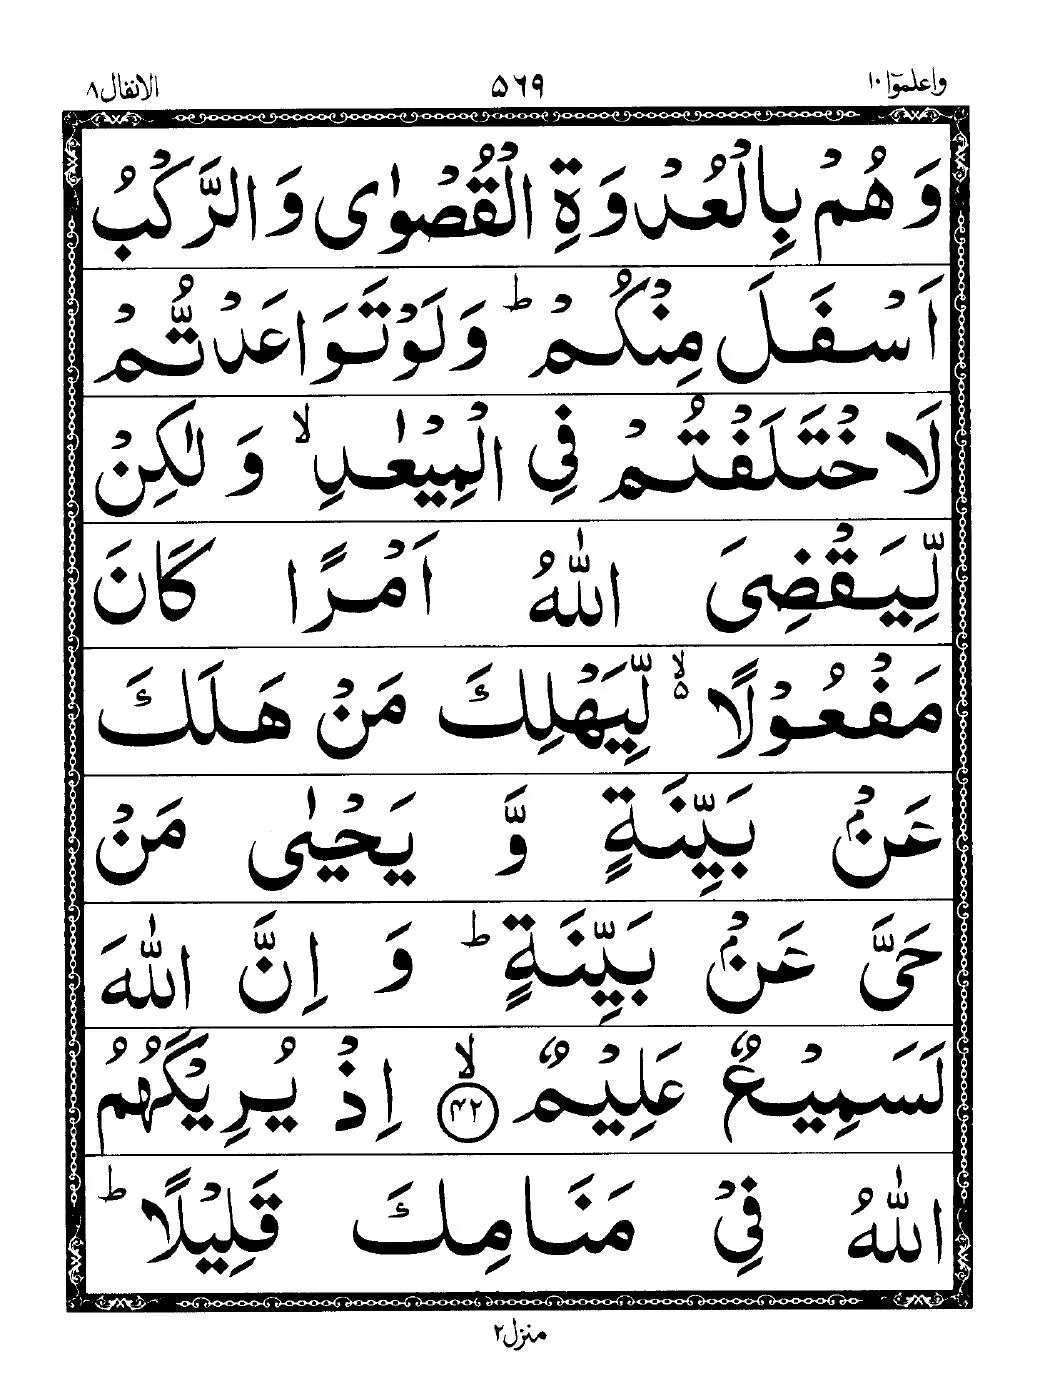 واعلموٓا ۱۰
۵۶۹
الانفال ۸
وَهُمۡ بِالۡعُدۡوَةِ الۡقُصۡوٰى وَالرَّكۡبُ
اَسۡفَلَ مِنۡكُمۡ‌ؕ وَلَوۡ تَوَاعَدْتُّمۡ
لَاخۡتَلَفۡتُمۡ فِى الۡمِيۡعٰدِ‌ۙ وَلٰـكِنۡ
لِّيَقۡضِىَ اللّٰهُ اَمۡرًا كَانَ
مَفۡعُوۡلًا ۙ۵ لِّيَهۡلِكَ مَنۡ هَلَكَ
عَنۡۢ بَيِّنَةٍ وَّيَحۡيٰى مَنۡ
حَىَّ عَنۡۢ بَيِّنَةٍ‌ ؕ وَاِنَّ اللّٰهَ
لَسَمِيۡعٌ عَلِيۡمٌۙ ﴿۴۲﴾ اِذۡ يُرِيۡكَهُمُ
اللّٰهُ فِىۡ مَنَامِكَ قَلِيۡلًا ؕ
منزل ۲